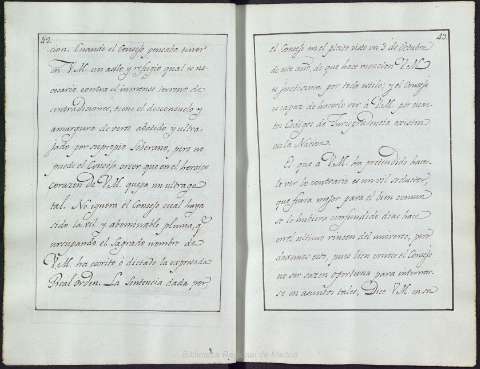 42.
cion. Quando el Consejo pensaba tener
en V.M. un asilo y refugio qual se ne-
cesario contra el inmenso torrente de
contradiciones, tiene el desconsuelo y
amargura de verse abatido y ultra-
jado por su propio Soberano, pero no
puede el Consejo creer que en el heroico
corazon de V.M. quepa un ultrage
tal. No ignora el Consejo cual haya
sido la vil y abominable pluma, q.
usurpando el Sagrado nombre de
V.M. ha escrito ó dictado la expresada
Real orden. La Sentencia dada por
43.
el Consejo en el pleito visto en 3 de Octubre
de este año, de que hace mencion V.M.
es justisima por todo estilo, y el Consejo
es capaz de hacerlo ver á V.M. por
Codigos de Jurisprudencia existen
en la Nacion.
El que á V.M. ha pretendido hacer-
le ver lo contrario es un vil seductor,
que fuera mejor para el bien comun
se le hubiera confundido dias hace
en el ultimo rincon del universo, pero
dexamos esto, pues bien conoce el Consejo
no ser sazon oportuna para internar-
se en asuntos tales. Dice V.M. en su
Biblioteca Regional de Madrid